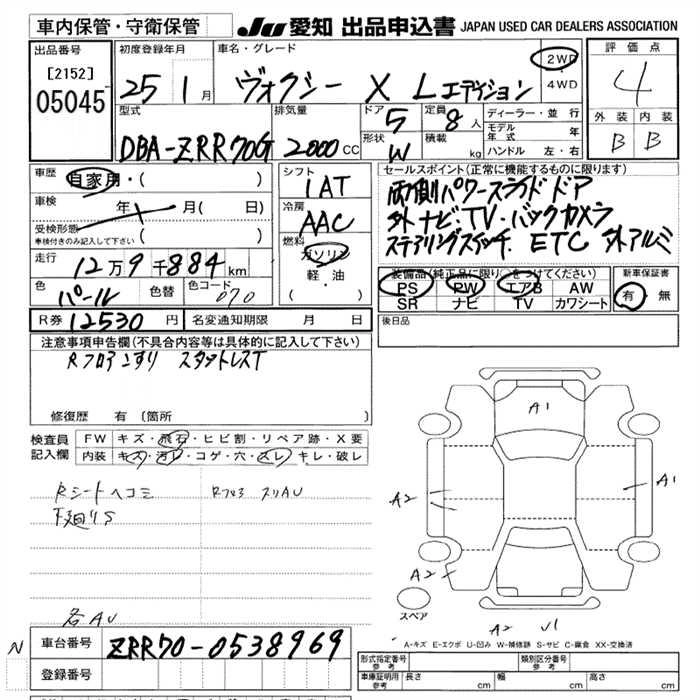 車内保管・守衛保管 JU 愛知 出品申込書 JAPAN USED CAR DEALERS ASSOCIATION
出品番号
[2152]
05045
初度登録年月
25 1月
車名・グレード
ヴォクシー X Lエディション
2WD・4WD
評価点
4
外装 内装
B B
型式
DBA-ZRR70G
排気量
2000 CC
ドア 5
形状 W
定員 8人
積載 kg
ディーラー・並行
モデル年式 年
ハンドル 左・右
車歴 自家用・( )
車検 年 月( 日)
受検形態
車検付きのみ記入して下さい ( )
走行
12万9千884km
色 パール 色替 色コード 070
R券 12530円 名変通知期限 月 日
シフト
1AT
冷房
AAC
燃料
ガソリン
軽・油
( )
セールスポイント(正常に機能するものに限ります)
両側パワースライドドア
外ナビ・TV・バックカメラ
ステアリングスイッチ ETC 外アルミ
装備品(純正品に限り○をつけてください)
PS PW エアB AW
SR ナビ TV カワシート
新車保証書
有・無
後日品
注意事項申告欄(不具合内容等は具体的に記入して下さい)
Rフロアこすり スタットレスT
修復歴 有(箇所
検査員記入欄
FW キズ・飛石・ヒビ割・リペア跡・X要
内装 キズ・汚レ・コゲ・穴・スレ・キレ・破レ
Rシートヘコミ Rフロア スリAU
下廻りS
各AU
A1
A2
A1
A2
スペア
A2 U1
A-キズ E-エクボ U-凹み W-補修跡 S-サビ C-腐食 XX-交換済
N
車台番号 ZRR70-0538969
登録番号
形式指定番号 参考
類別区分番号 参考
車庫証明用 参考 長さ cm 幅 cm 高さ cm